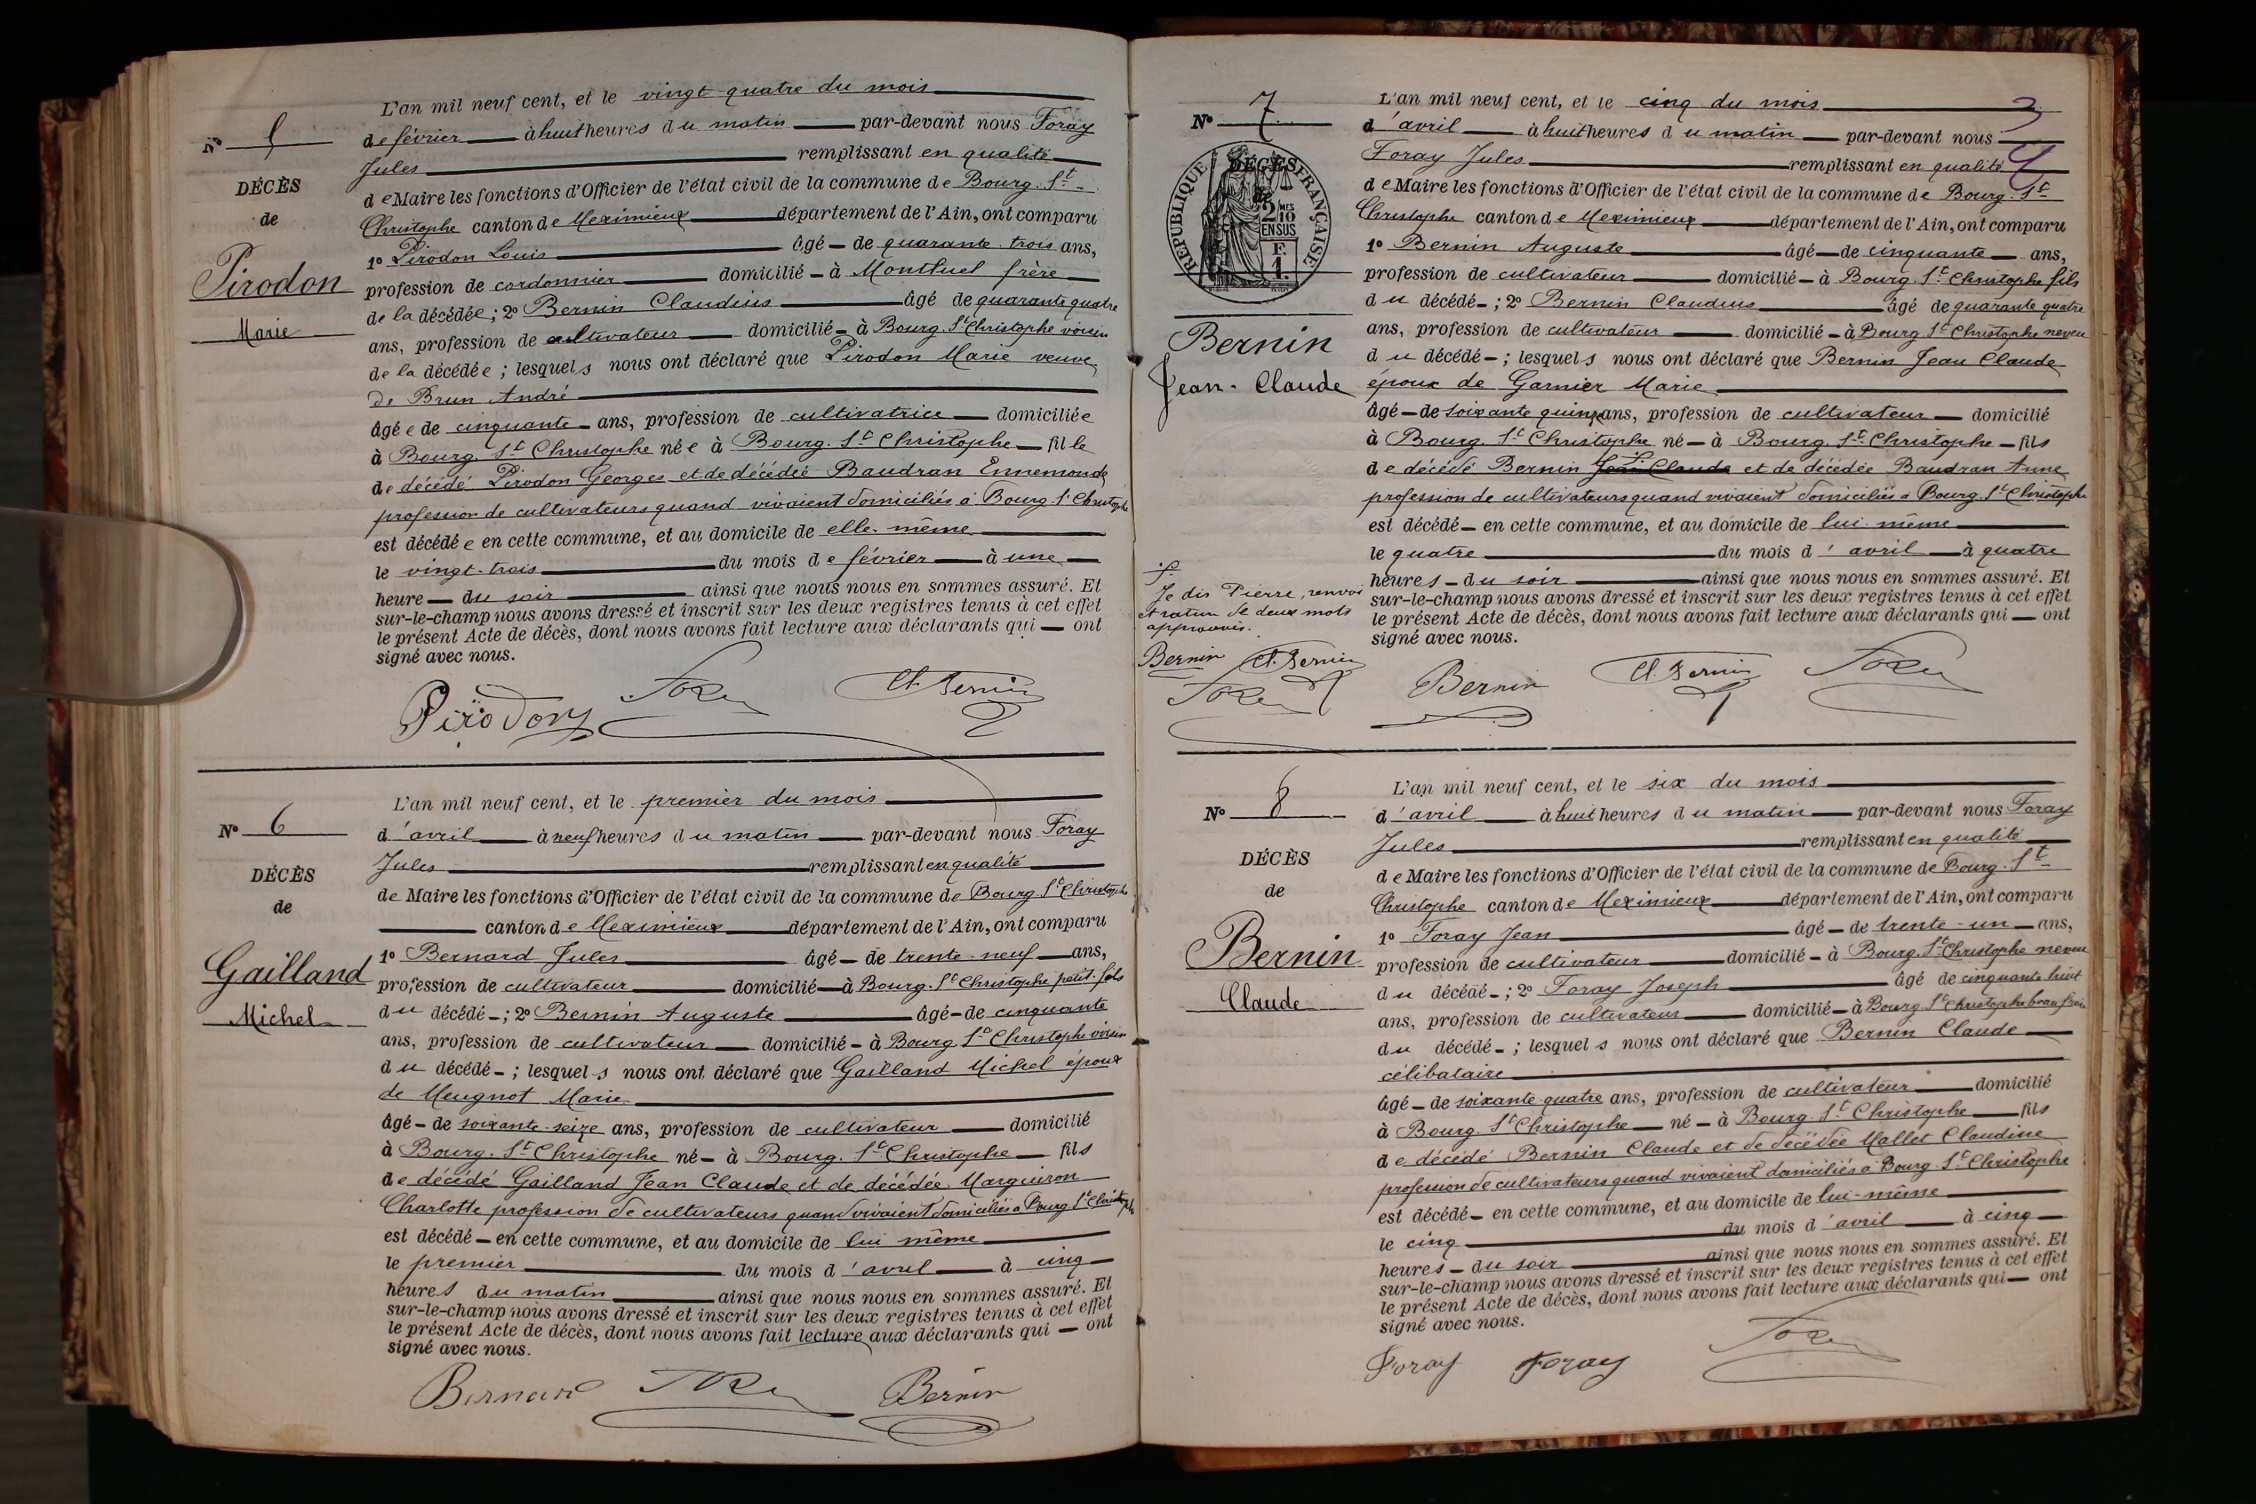 Nº 5
DÉCÈS
de
Pirodon
Marie
L'an mil neuf cent, et le vingt-quatre du mois
de février à huit heures du matin par-devant nous Foray
Jules remplissant en qualité
de Maire les fonctions d'Officier de l'état civil de la commune de Bourg-St-
Christophe canton de Meximieux département de l'Ain, ont comparu
1º Pirodon Louis âgé de quarante-trois ans,
profession de cordonnier domicilié à Montluel frère
de la décédée; 2º Bernin Claudius âgé de quarante quatre
ans, profession de cultivateur domicilié à Bourg St Christophe voisin
de la décédée; lesquels nous ont déclaré que Pirodon Marie veuve
de Brun André
âgée de cinquante ans, profession de cultivatrice domiciliée
à Bourg St Christophe née à Bourg-St Christophe fille
de décédé Pirodon Georges et de décédée Baudran Ennemonde
profession de cultivateurs quand vivaient domiciliés à Bourg St Christophe
est décédée en cette commune, et au domicile de elle-même
le vingt-trois du mois de février à une
heure du soir ainsi que nous nous en sommes assuré. Et
sur-le-champ nous avons dressé et inscrit sur les deux registres tenus à cet effet
le présent Acte de décès, dont nous avons fait lecture aux déclarants qui ont
signé avec nous.
Pirodon Foray Cl. Bernin
Nº 6
DÉCÈS
de
Gailland
Michel
L'an mil neuf cent, et le premier du mois
d'avril à neuf heures du matin par-devant nous Foray
Jules remplissant en qualité
de Maire les fonctions d'Officier de l'état civil de la commune de Bourg-St Christophe
canton de Meximieux département de l'Ain, ont comparu
1º Bernard Jules âgé de trente-neuf ans,
profession de cultivateur domicilié à Bourg-St Christophe petit-fils
du décédé; 2º Bernin Auguste âgé de cinquante
ans, profession de cultivateur domicilié à Bourg St Christophe voisin
du décédé; lesquels nous ont déclaré que Gailland Michel époux
de Meugnot Marie
âgé de soixante-seize ans, profession de cultivateur domicilié
à Bourg-St Christophe né à Bourg-St Christophe fils
de décédé Gailland Jean Claude et de décédée Marguiron
Charlotte profession de cultivateurs quand vivaient domiciliés à Bourg St Christophe
est décédé en cette commune, et au domicile de lui même
le premier du mois d'avril à cinq
heures du matin ainsi que nous nous en sommes assuré. Et
sur-le-champ nous avons dressé et inscrit sur les deux registres tenus à cet effet
le présent Acte de décès, dont nous avons fait lecture aux déclarants qui ont
signé avec nous.
Bernard Foray Bernin
Nº 7
DÉCÈS
de
RÉPUBLIQUE FRANÇAISE
2 MES
10
EN SUS
F.
1.
Bernin
Jean-Claude
L'an mil neuf cent, et le cinq du mois
d'avril à huit heures du matin par-devant nous
Foray Jules remplissant en qualité
de Maire les fonctions d'Officier de l'état civil de la commune de Bourg-St
Christophe canton de Meximieux département de l'Ain, ont comparu
1º Bernin Auguste âgé de cinquante ans,
profession de cultivateur domicilié à Bourg-St Christophe fils
du décédé; 2º Bernin Claudius âgé de quarante quatre
ans, profession de cultivateur domicilié à Bourg St Christophe neveu
du décédé; lesquels nous ont déclaré que Bernin Jean Claude
époux de Garnier Marie
âgé de soixante quinze ans, profession de cultivateur domicilié
à Bourg-St Christophe né à Bourg-St Christophe fils
de décédé Bernin Jean Claude et de décédée Baudran Anne
profession de cultivateurs quand vivaient domiciliés à Bourg-St Christophe
est décédé en cette commune, et au domicile de lui-même
le quatre du mois d'avril à quatre
heures du soir ainsi que nous nous en sommes assuré. Et
sur-le-champ nous avons dressé et inscrit sur les deux registres tenus à cet effet
le présent Acte de décès, dont nous avons fait lecture aux déclarants qui ont
signé avec nous.
Je dis Pierre, renvoi
et rature de deux mots
approuvés.
Bernin Cl. Bernin
Foray
Bernin Cl. Bernin Foray
Nº 8
DÉCÈS
de
Bernin
Claude
L'an mil neuf cent, et le six du mois
d'avril à huit heures du matin par-devant nous Foray
Jules remplissant en qualité
de Maire les fonctions d'Officier de l'état civil de la commune de Bourg-St-
Christophe canton de Meximieux département de l'Ain, ont comparu
1º Foray Jean âgé de trente-un ans,
profession de cultivateur domicilié à Bourg-St Christophe neveu
du décédé; 2º Foray Joseph âgé de cinquante huit
ans, profession de cultivateur domicilié à Bourg St Christophe beau frère
du décédé; lesquels nous ont déclaré que Bernin Claude
célibataire
âgé de soixante-quatre ans, profession de cultivateur domicilié
à Bourg-St Christophe né à Bourg-St Christophe fils
de décédé Bernin Claude et de décédée Mallet Claudine
profession de cultivateurs quand vivaient domiciliés à Bourg-St Christophe
est décédé en cette commune, et au domicile de lui-même
le cinq du mois d'avril à cinq
heures du soir ainsi que nous nous en sommes assuré. Et
sur-le-champ nous avons dressé et inscrit sur les deux registres tenus à cet effet
le présent Acte de décès, dont nous avons fait lecture aux déclarants qui ont
signé avec nous.
Foray Foray Foray